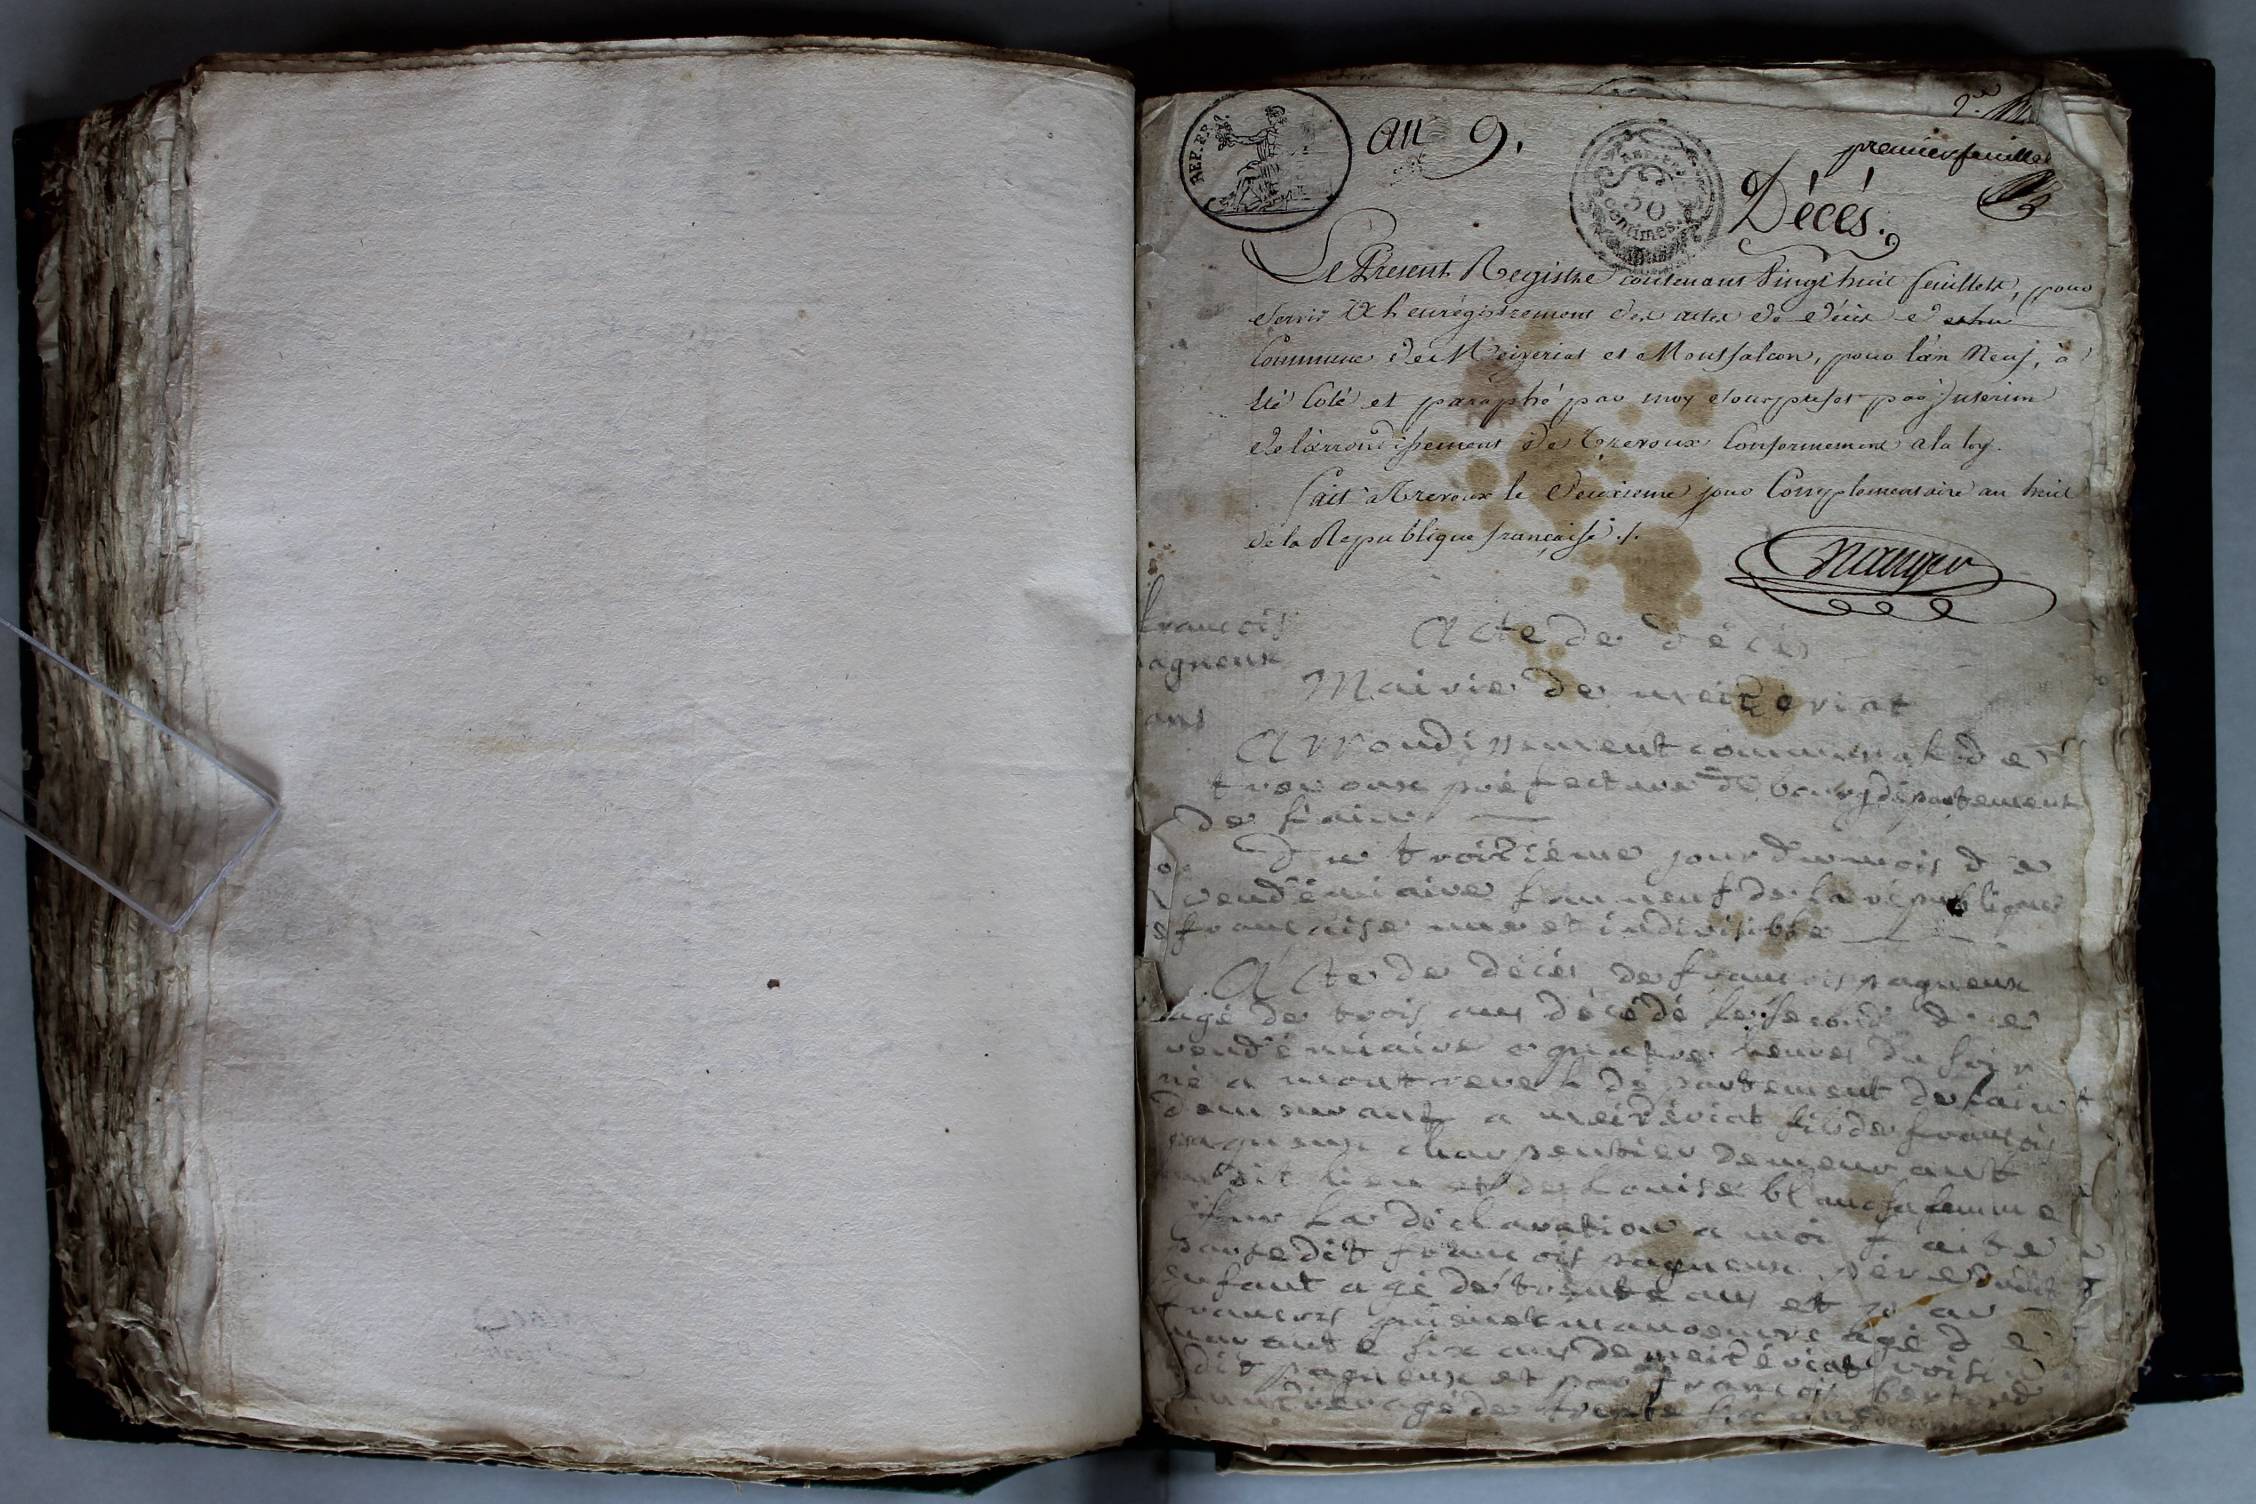 REP. FR.
an 9.
REP. FR.
50
centimes.
premier feuillet
Décés.
Le Présent Registre contenant Vingt huit feuillets, pour
servir à l'enrégistrement des actes de décès de
Commune de Meizeriat et Montfalcon, pour l'an Neuf, à
été Coté et paraphé par moy souspréfet par Interim
de l'arrondissement de Trevoux Conformement a la loy.
fait a Trevoux le Deuxieme jour Complementaire an huit
de la Republique française ./.
françois
pagneux
ans
Acte de décès
Mairie de meizériat
Arrondissement communal de
trevoux préfecture de bourg département
de l'ain
Du troizième jour du mois de
vendémiaire l'an neuf de la république
française une et indivisible
Acte de décès de françois pagneux
agé de trois ans décédé le second de
vendémiaire a quatre heures du soir
né a montrevel département de l'ain
demeurant a meizériat fils de françois
pagneux charpentier demeurant
dit lieu et de Louise blanc sa femme
sur la déclaration a moi faite
par ledit françois pagneux père dudit
enfant agé de trente ans et par
françois manoeuvre agé de
quarante six ans de meizériat voisin
dit pagneux et par françois
agé de trente six ans